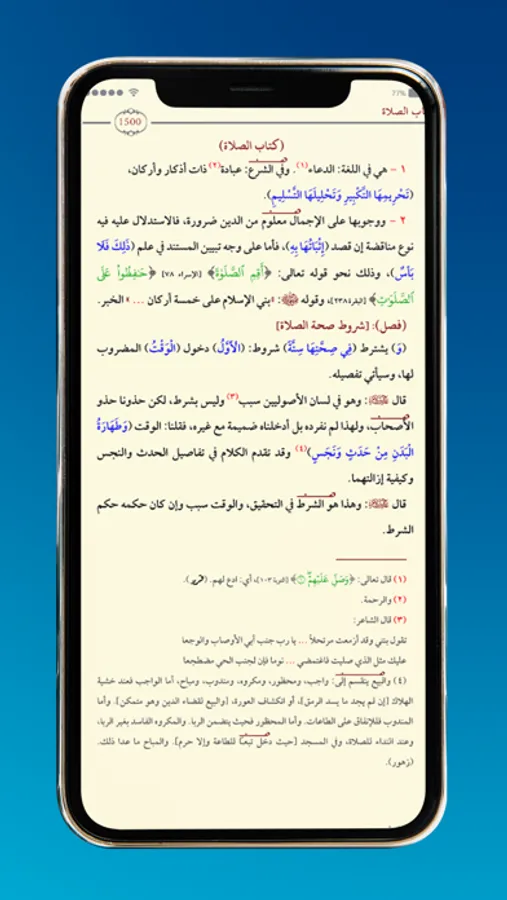 77%
كتاب الصلاة
1500
(كتاب الصلاة)
١ - هي في اللغة: الدعاء(١). وفي الشرع: عبادة(٢) ذات أذكار وأركان،
(تَحْرِيمُهَا التَّكْبِيرِ وَتَحْلِيلُهَا التَّسْلِيمِ).
٢ - ووجوبها على الإجمال معلوم من الدين ضرورة، فالاستدلال عليه فيه
نوع مناقضة إن قصد (إِثْبَاتُهَا بِهِ)، فأما على وجه تبيين المستند في علم (ذَلِكَ فَلَا
بَأسَ)، وذلك نحو قوله تعالى: ﴿أَقِمِ ٱلصَّلَوٰةَ﴾ [الإسراء ٧٨] ﴿حَـٰفِظُوا۟ عَلَى
ٱلصَّلَوَٰتِ﴾ [البقرة ٢٣٨]، وقوله ﷺ: «بني الإسلام على خمسة أركان ... » الخبر.
(فصل): [شروط صحة الصلاة]
(وَ) يشترط (فِي صِحَّتِهَا سِتَّةٌ) شروط: (الْأَوَّلُ) دخول (الْوَقْتُ) المضروب
لها، وسيأتي تفصيله.
قال: وهو في لسان الأصوليين سبب(٣) وليس بشرط، لكن حذونا حذو
الأصحاب، ولهذا لم نفرده بل أدخلناه ضميمة مع غيره، فقلنا: الوقت (وَطَهَارَةُ
الْبَدَنِ مِنْ حَدَثٍ وَنَجَسٍ)(٤) وقد تقدم الكلام في تفاصيل الحدث والنجس
وكيفية إزالتهما.
قال: وهذا هو الشرط في التحقيق، والوقت سبب وإن كان حكمه حكم
الشرط.
(١) قال تعالى: ﴿وَصَلِّ عَلَيْهِمْ﴾ [التوبة ١٠٣]، أي: ادع لهم.
(٢) والرحمة.
(٣) قال الشاعر:
تقول بنتي وقد أزمعت مرتحلاً ... يا رب جنب أبي الأوصاب والوجعا
عليك مثل الذي صليت فاغتمضي ... نوما فإن لجنب الحي مضطجعا
(٤) والبيع ينقسم إلى: واجب، ومحظور، ومكروه، ومندوب، ومباح، أما الواجب فعند خشية
الهلاك [إن لم يجد ما يسد الرمق]، أو انكشاف العورة، [والبيع لقضاء الدين وهو متمكن]. وأما
المندوب فللإنفاق على الطاعات. وأما المحظور فحيث يتضمن الربا. والمكروه الفاسد بغير الربا،
وعند النداء للصلاة، وفي المسجد [حيث دخل تبعاً للطاعة وإلا حرم]. والمباح ما عدا ذلك.
(زهور).